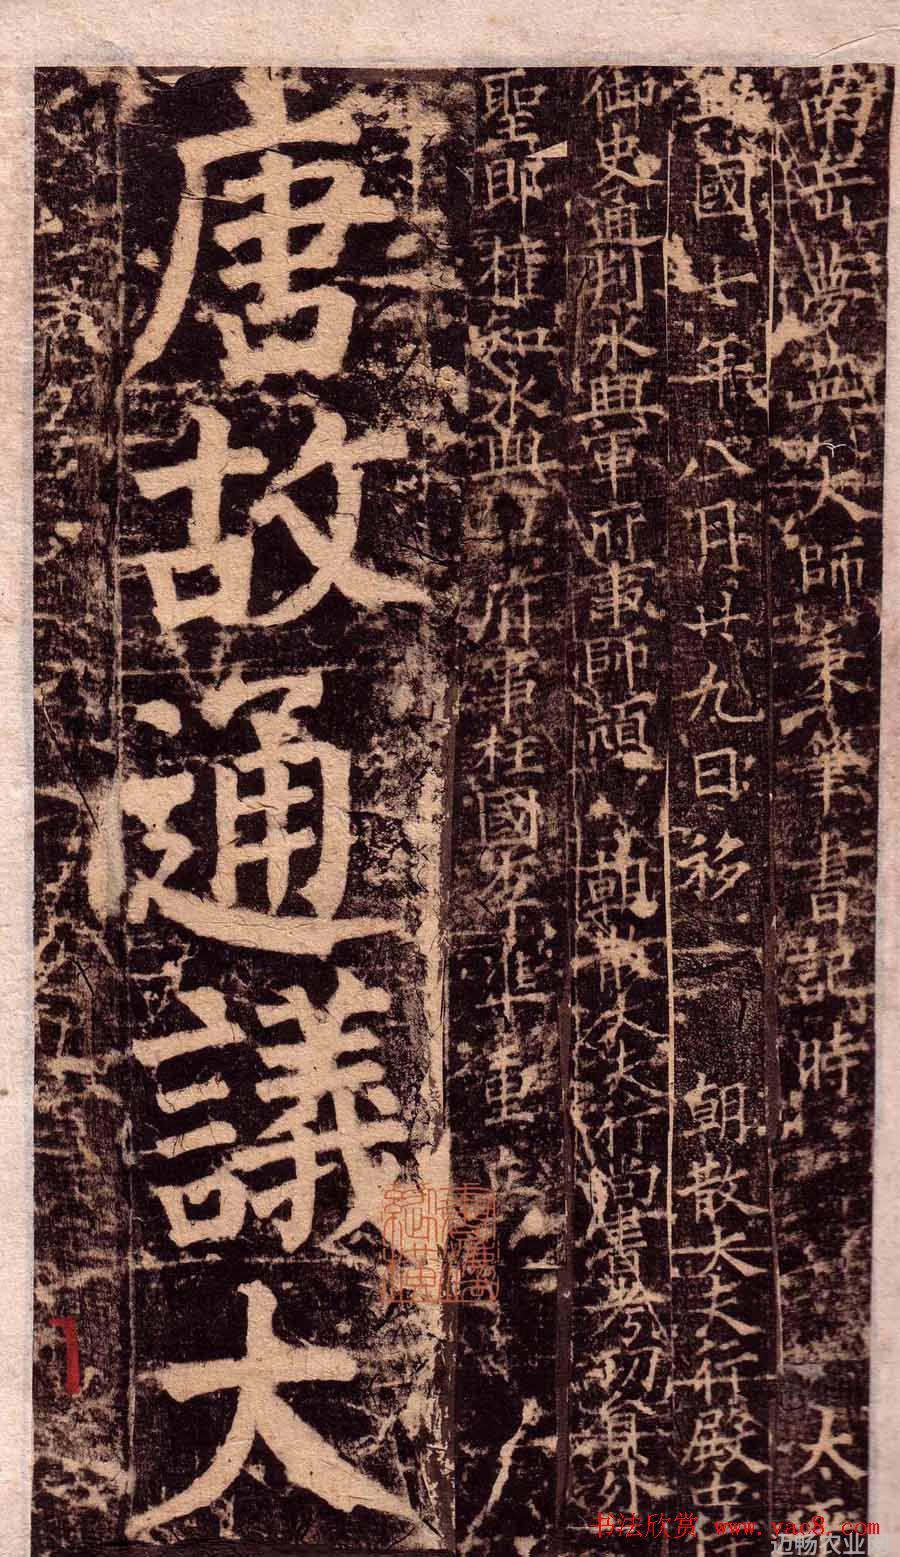 南岳夢英大師秉筆書記時 太
興國七年八月廿九日移 朝散大夫行殿中侍
御史通判永興軍府事師頏 朝散大夫行尚書考功員外
郎權知永興軍府事柱國李準重立
唐故通議大
书法欣赏 www.yac8.com
迈畅农业